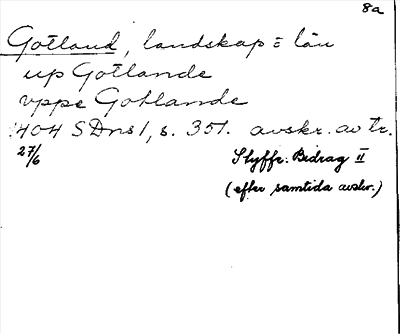 8a
Gotland, landskap = län
up Gotlande
vppe Gotlande
1404 SDns 1, s. 351. avskr. av tr.
27/6 Styffe. Bidrag II
(efter samtida avskr.)